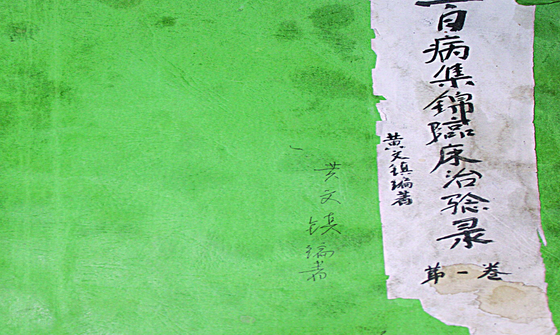 一百病集锦临床治验录
黄文镇编著
第一卷
黄文镇编著